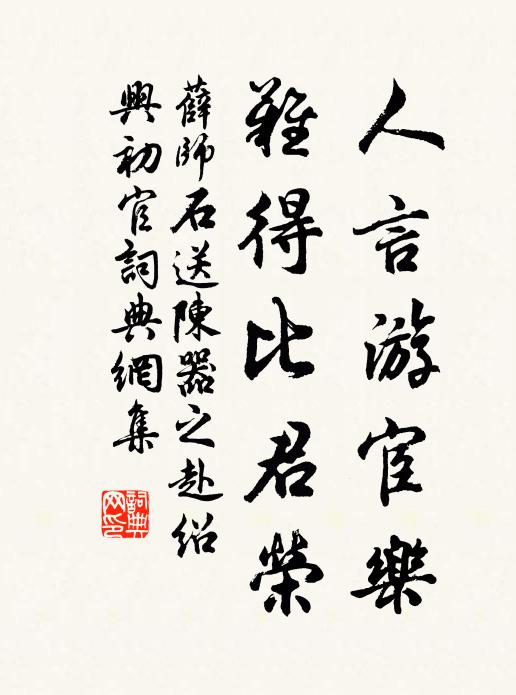 人言游宦樂
難得比君榮
薛師石送陳器之赴紹
興初官詞典網集
詞典
网印